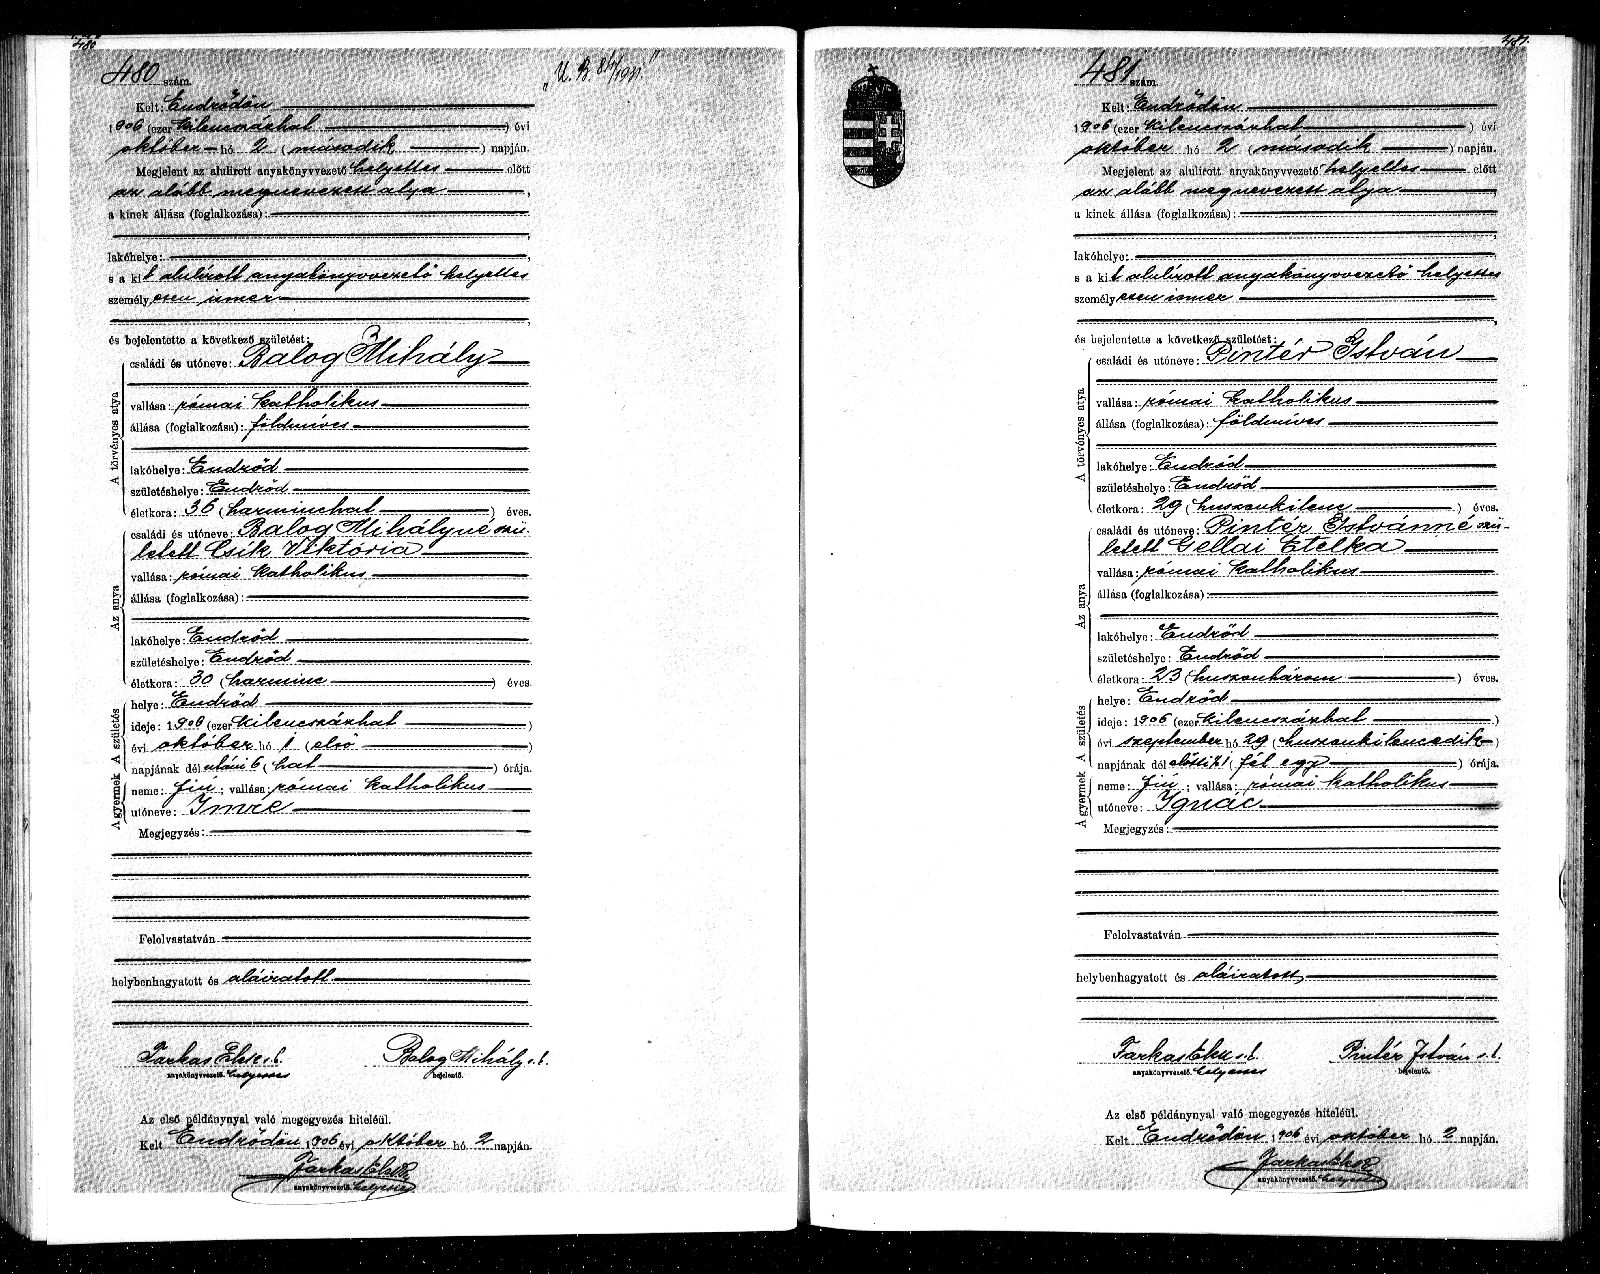 480
480 szám.
„U. B. 84/1911."
Kelt: Endrődön
1906 (ezer kilenczázhat ) évi
október hó 2 ( második ) napján.
Megjelent az alulirott anyakönyvvezető helyettes előtt
az alább megnevezett atya ,
a kinek állása (foglalkozása):
,
lakóhelye: ,
s a kit alulírott anyakönyvvezető helyettes
személyesen ismer
,
és bejelentette a következő születést:
A törvényes atya
családi és utóneve: Balog 3 Mihály
vallása: római katholikus
állása (foglalkozása): földmíves
lakóhelye: Endrőd
születéshelye: Endrőd
életkora: 36 (harminchat ) éves.
Az anya
családi és utóneve: Balog Mihályné szü-
letett Csík Viktória
vallása: római katholikus
állása (foglalkozása):
lakóhelye: Endrőd
születéshelye: Endrőd
életkora: 30 (harmincz ) éves.
A születés
helye: Endrőd
ideje: 1906 (ezer kilenczázhat )
évi október hó 1 (első )
napjának dél utáni 6 (hat ) órája.
A gyermek
neme: fiú ; vallása: római katholikus
utóneve: Imre
Megjegyzés:
Felolvastatván
helybenhagyatott és aláiratott
Farkas Elek s. k. Balog Mihály s. k.
anyakönyvvezető. helyettes bejelentő.
Az első példánynyal való megegyezés hiteléül.
Kelt Endrődön 1906 évi október hó 2 napján.
Farkas Elek
anyakönyvvezető. helyettes
481.
481 szám.
Kelt: Endrődön
1906 (ezer kilenczázhat ) évi
október hó 2 ( második ) napján.
Megjelent az alulirott anyakönyvvezető helyettes előtt
az alább megnevezett atya ,
a kinek állása (foglalkozása):
,
lakóhelye: ,
s a kit alulírott anyakönyvvezető helyettes
személyesen ismer
,
és bejelentette a következő születést:
A törvényes atya
családi és utóneve: Pintér István
vallása: római katholikus
állása (foglalkozása): földmíves
lakóhelye: Endrőd
születéshelye: Endrőd
életkora: 29 (huszonkilenc ) éves.
Az anya
családi és utóneve: Pintér Istvánné szü-
letett Gellai Etelka
vallása: római katholikus
állása (foglalkozása):
lakóhelye: Endrőd
születéshelye: Endrőd
életkora: 23 (huszonhárom ) éves.
A születés
helye: Endrőd
ideje: 1906 (ezer kilenczázhat )
évi szeptember hó 29 (huszonkilencedik )
napjának dél előtti ½1 (fél egy ) órája.
A gyermek
neme: fiú ; vallása: római katholikus
utóneve: Ignác
Megjegyzés:
Felolvastatván
helybenhagyatott és aláiratott
Farkas Elek s. k. Pintér István s. k.
anyakönyvvezető. helyettes bejelentő.
Az első példánynyal való megegyezés hiteléül.
Kelt Endrődön 1906 évi október hó 2 napján.
Farkas Elek
anyakönyvvezető. helyettes